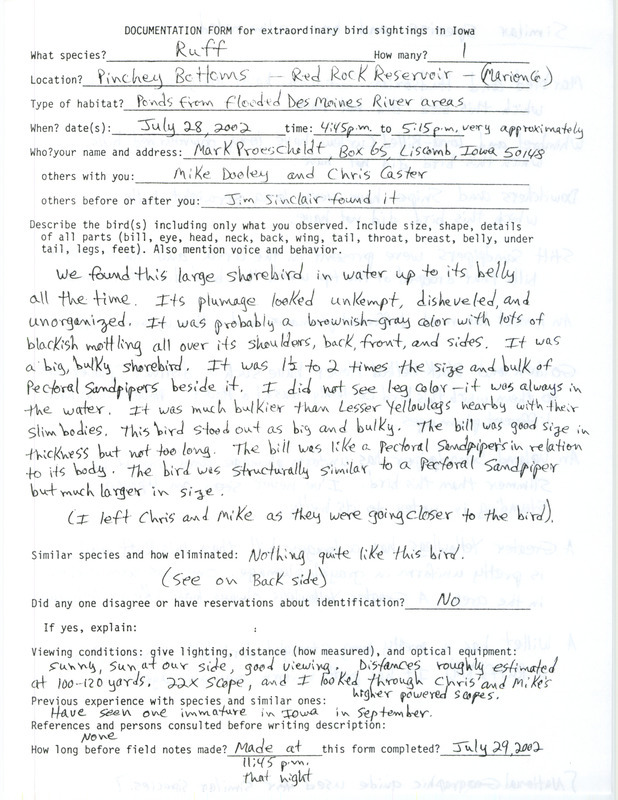 DOCUMENTATION FORM for extraordinary bird sightings in Iowa
What species? Ruff How many? 1
Location? Pinchey Bottoms – Red Rock Reservoir – (Marion Co.)
Type of habitat? Ponds from flooded Des Moines River areas
When? date(s): July 28, 2002 time: 4:45 p.m. to 5:15 p.m. very approximately
Who?your name and address: Mark Proescholdt, Box 65, Liscomb, Iowa 50148
others with you: Mike Dooley and Chris Caster
others before or after you: Jim Sinclair found it
Describe the bird(s) including only what you observed. Include size, shape, details
of all parts (bill, eye, head, neck, back, wing, tail, throat, breast, belly, under
tail, legs, feet). Also mention voice and behavior.
We found this large shorebird in water up to its belly
all the time. Its plumage looked unkempt, disheveled, and
unorganized. It was probably a brownish-gray color with lots of
blackish mottling all over its shoulders, back, front, and sides. It was
a big, bulky shorebird. It was 1½ to 2 times the size and bulk of
Pectoral Sandpipers beside it. I did not see leg color – it was always in
the water. It was much bulkier than Lesser Yellowlegs nearby with their
slim bodies. This bird stood out as big and bulky. The bill was good size in
thickness but not too long. The bill was like a Pectoral Sandpiper's in relation
to its body. The bird was structurally similar to a Pectoral Sandpiper
but much larger in size.
(I left Chris and Mike as they were going closer to the bird).
Similar species and how eliminated: Nothing quite like this bird.
(See on Back side)
Did any one disagree or have reservations about identification? No
If yes, explain:
Viewing conditions: give lighting, distance (how measured), and optical equipment:
Sunny, sun at our side, good viewing. Distances roughly estimated
at 100-120 yards. 22x scope, and I looked through Chris' and Mike's
higher powered scopes.
Previous experience with species and similar ones:
Have seen one immature in Iowa in September.
References and persons consulted before writing description:
None
How long before field notes made? Made at this form completed? July 29, 2002
11:45 p.m.
that night